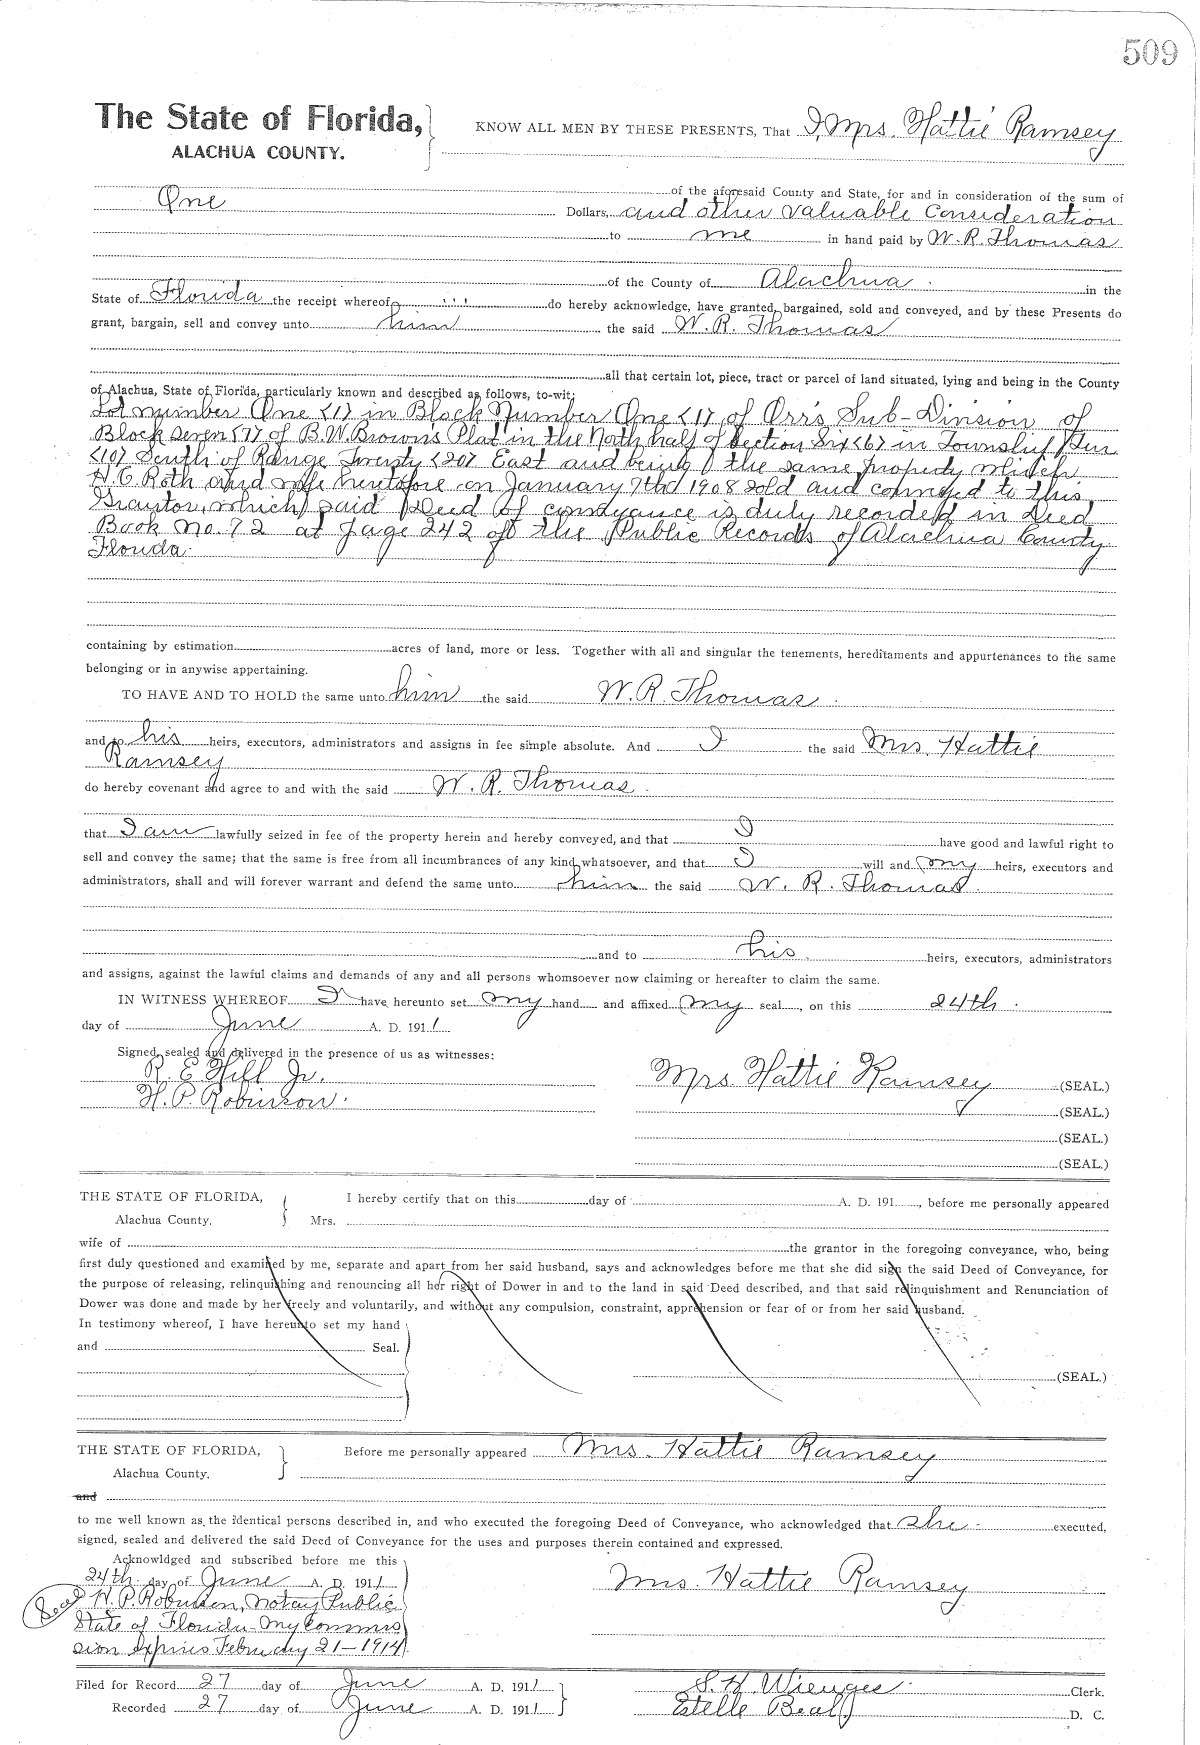 509
The State of Florida,
ALACHUA COUNTY.
KNOW ALL MEN BY THESE PRESENTS, That I, Mrs. Hattie Ramsey
of the aforesaid County and State, for and in consideration of the sum of
One Dollars, and other valuable consideration
to me in hand paid by W. R. Thomas
of the County of Alachua in the
State of Florida the receipt whereof do hereby acknowledge, have granted, bargained, sold and conveyed, and by these Presents do
grant, bargain, sell and convey unto him the said W. R. Thomas
all that certain lot, piece, tract or parcel of land situated, lying and being in the County
of Alachua, State of Florida, particularly known and described as follows, to-wit:
Lot number One <1> in Block Number One <1> of Orr's Sub-Division of
Block seven <7> of B. W. Brown's Plat in the North half of Section Six <6> in Township Ten
<10> South of Range Twenty <20> East and being the same property which
H. C. Roth and wife heretofore on January 7th 1908 sold and conveyed to this
Grantor, which said Deed of conveyance is duly recorded in Deed
Book No. 72 at page 242 of the Public Records of Alachua County
Florida.
containing by estimation acres of land, more or less. Together with all and singular the tenements, hereditaments and appurtenances to the same
belonging or in anywise appertaining.
TO HAVE AND TO HOLD the same unto him the said W. R. Thomas.
and to his heirs, executors, administrators and assigns in fee simple absolute. And I the said Mrs. Hattie
Ramsey
do hereby covenant and agree to and with the said W. R. Thomas.
that I am lawfully seized in fee of the property herein and hereby conveyed, and that I have good and lawful right to
sell and convey the same; that the same is free from all incumbrances of any kind whatsoever, and that I will and my heirs, executors and
administrators, shall and will forever warrant and defend the same unto him the said W. R. Thomas.
and to his heirs, executors, administrators
and assigns, against the lawful claims and demands of any and all persons whomsoever now claiming or hereafter to claim the same.
IN WITNESS WHEREOF I have hereunto set my hand and affixed my seal, on this 24th.
day of June A. D. 1911.
Signed, sealed and delivered in the presence of us as witnesses:
R. E. Hill Jr.
Mrs Hattie Ramsey (SEAL.)
H. P. Robinson.
(SEAL.)
(SEAL.)
(SEAL.)
THE STATE OF FLORIDA, I hereby certify that on this day of A. D. 191 , before me personally appeared
Alachua County. Mrs.
wife of the grantor in the foregoing conveyance, who, being
first duly questioned and examined by me, separate and apart from her said husband, says and acknowledges before me that she did sign the said Deed of Conveyance, for
the purpose of releasing, relinquishing and renouncing all her right of Dower in and to the land in said Deed described, and that said relinquishment and Renunciation of
Dower was done and made by her freely and voluntarily, and without any compulsion, constraint, apprehension or fear of or from her said husband.
In testimony whereof, I have hereunto set my hand
and Seal.
(SEAL.)
THE STATE OF FLORIDA, Before me personally appeared Mrs. Hattie Ramsey
Alachua County.
and
to me well known as the identical persons described in, and who executed the foregoing Deed of Conveyance, who acknowledged that she executed,
signed, sealed and delivered the said Deed of Conveyance for the uses and purposes therein contained and expressed.
Acknowldged and subscribed before me this
24th day of June A. D. 1911.
Mrs. Hattie Ramsey
Seal H. P. Robinson, Notary Public
State of Florida- My Commis
sion Expires February 21-1914
Filed for Record 27 day of June A. D. 1911
S. H. Wienges. Clerk.
Recorded 27 day of June A. D. 1911.
Estelle Beall D. C.